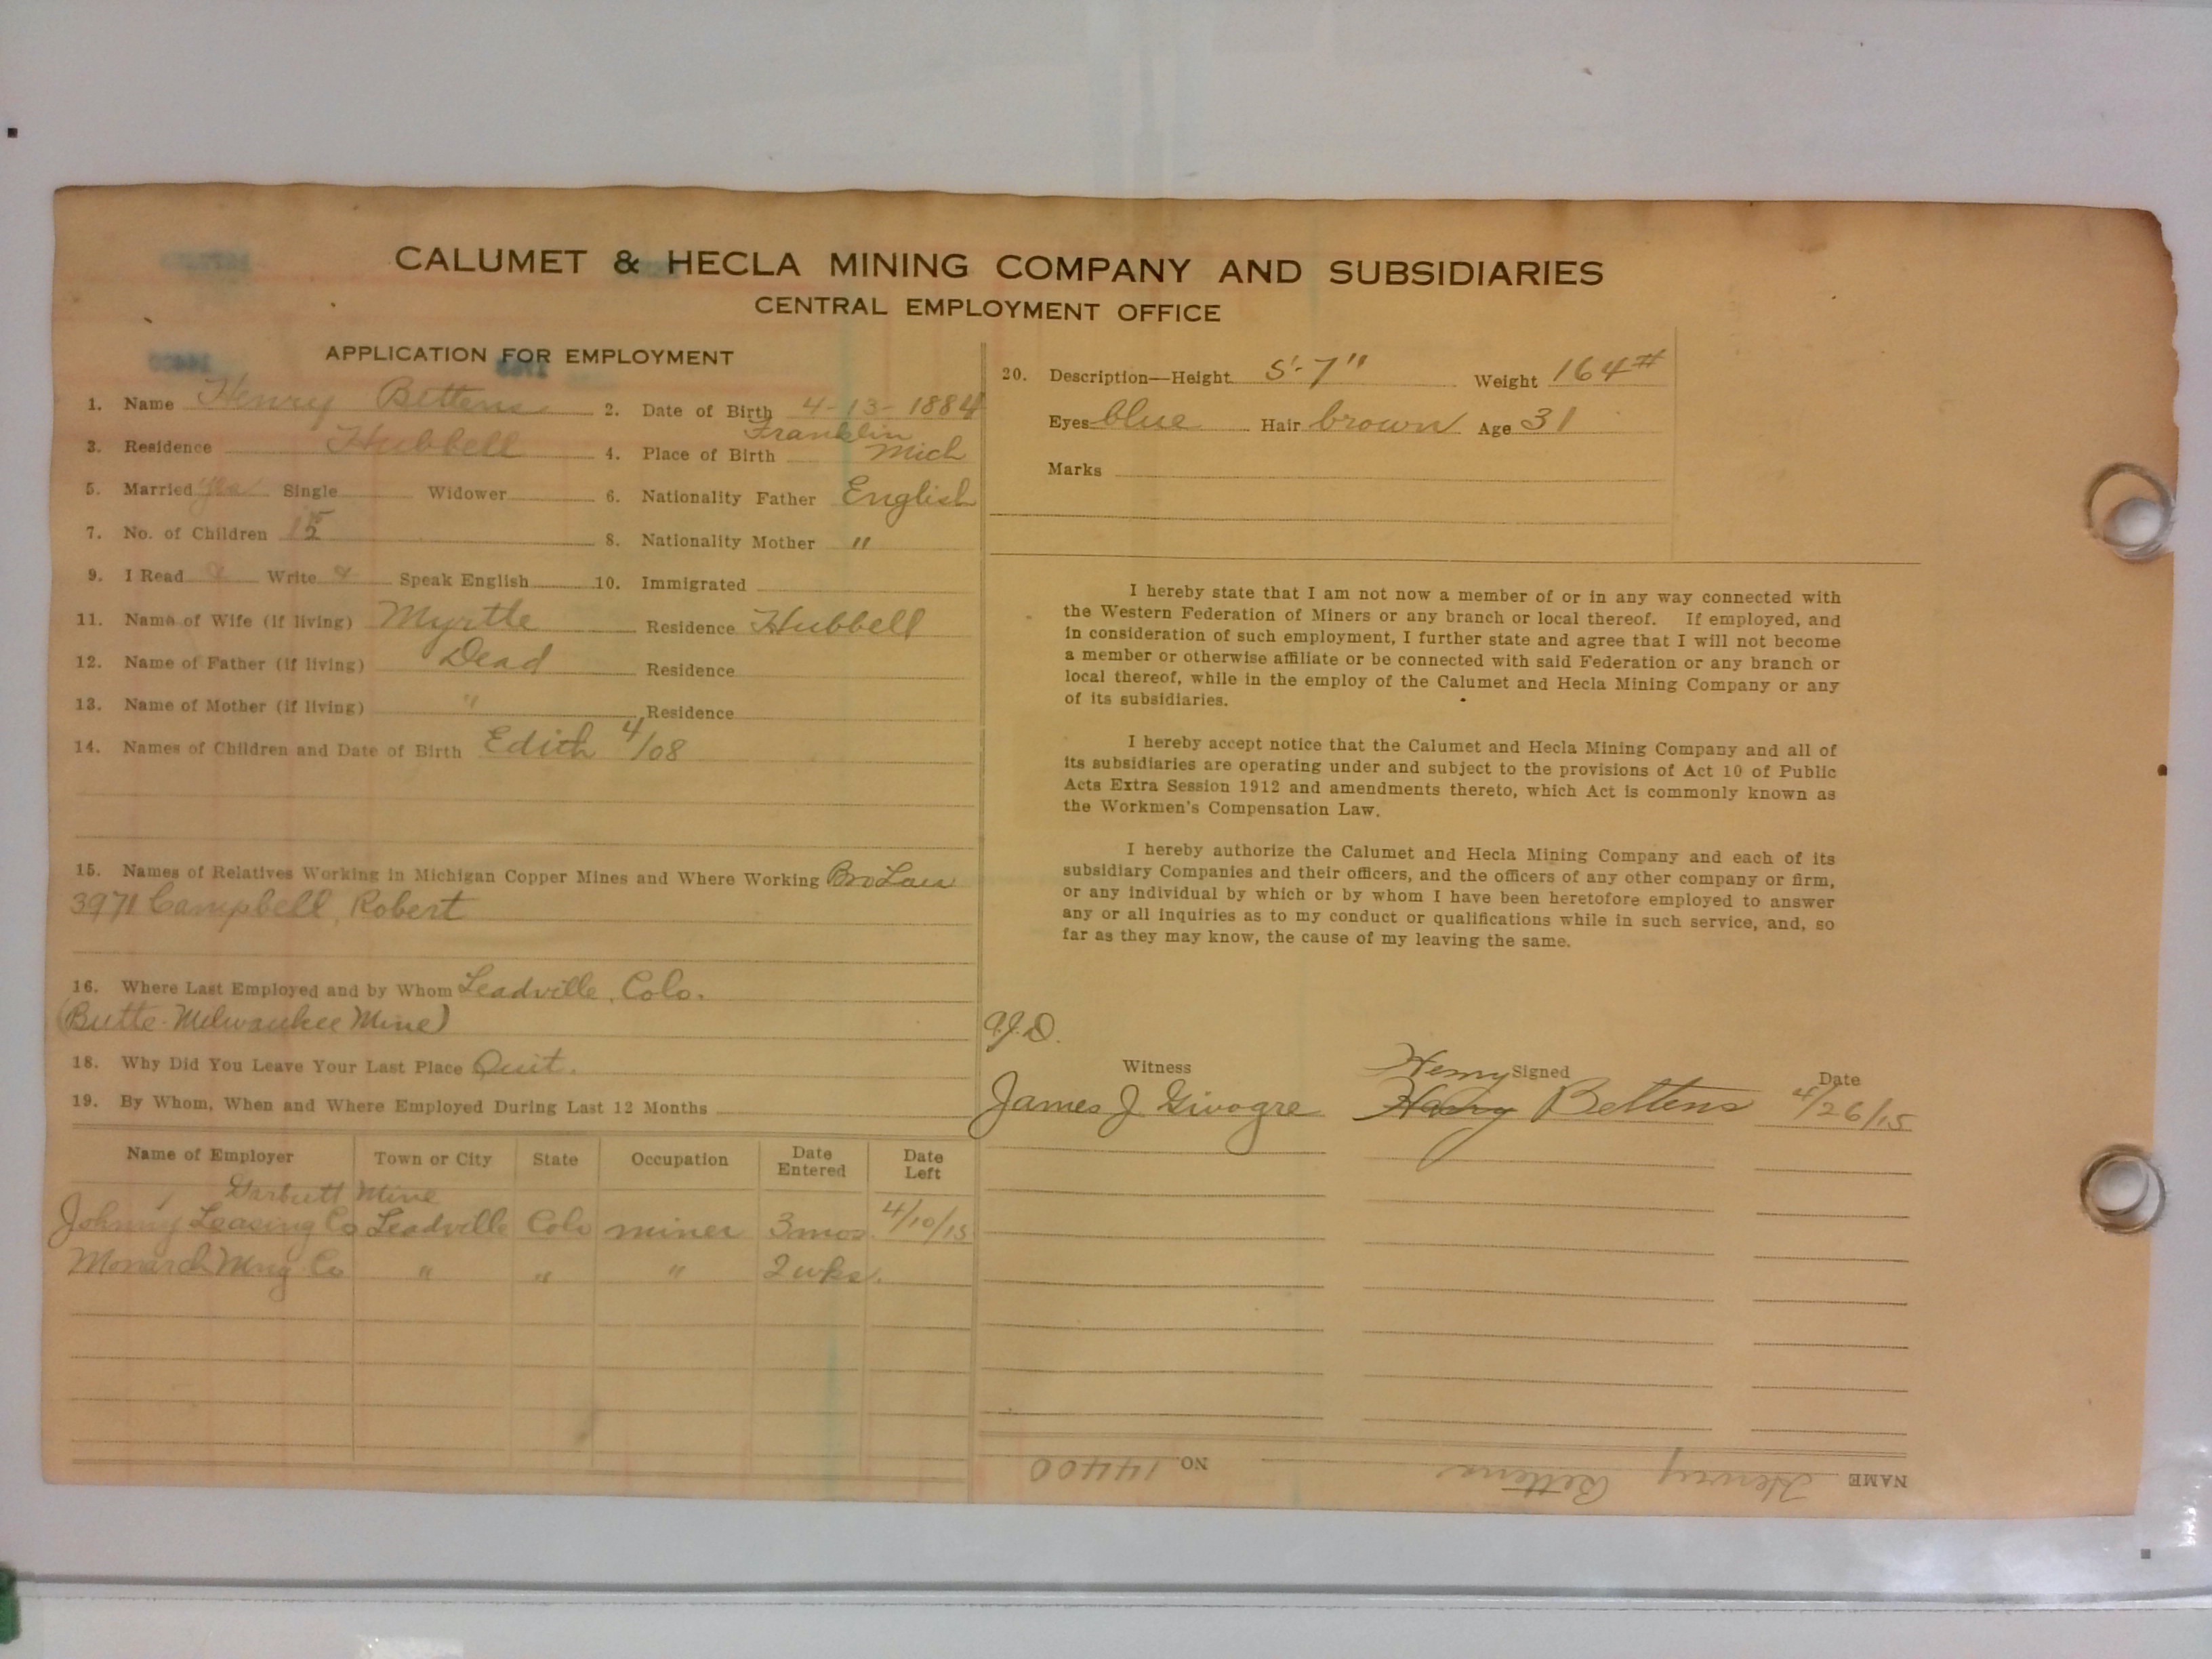 CALUMET & HECLA MINING COMPANY AND SUBSIDIARIES
CENTRAL EMPLOYMENT OFFICE
APPLICATION FOR EMPLOYMENT
1. Name Henry Bettens 2. Date of Birth 4-13-1884
3. Residence Hubbell 4. Place of Birth Franklin Mich
5. Married yes Single Widower 6. Nationality Father English
7. No. of Children 8. Nationality Mother "
9. I Read Write Speak English 10. Immigrated
11. Name of Wife (if living) Myrtle Residence Hubbell
12. Name of Father (if living) Dead Residence
13. Name of Mother (if living) " Residence
14. Names of Children and Date of Birth Edith 4/08
15. Names of Relatives Working in Michigan Copper Mines and Where Working Bro Law
3971 Campbell, Robert
16. Where Last Employed and by Whom Leadville, Colo.
(Butte-Milwaukee Mine)
18. Why Did You Leave Your Last Place Quit.
19. By Whom, When and Where Employed During Last 12 Months
Name of Employer Town or City State Occupation Date Entered Date Left
Garbutt Mine
Johnny Leasing Co Leadville Colo miner 3 mos. 4/10/15
Monarch Mng Co " " " 2 wks.
20. Description—Height 5'-7" Weight 164#
Eyes blue Hair brown Age 31
Marks
I hereby state that I am not now a member of or in any way connected with
the Western Federation of Miners or any branch or local thereof. If employed, and
in consideration of such employment, I further state and agree that I will not become
a member or otherwise affiliate or be connected with said Federation or any branch or
local thereof, while in the employ of the Calumet and Hecla Mining Company or any
of its subsidiaries.
I hereby accept notice that the Calumet and Hecla Mining Company and all of
its subsidiaries are operating under and subject to the provisions of Act 10 of Public
Acts Extra Session 1912 and amendments thereto, which Act is commonly known as
the Workmen's Compensation Law.
I hereby authorize the Calumet and Hecla Mining Company and each of its
subsidiary Companies and their officers, and the officers of any other company or firm,
or any individual by which or by whom I have been heretofore employed to answer
any or all inquiries as to my conduct or qualifications while in such service, and, so
far as they may know, the cause of my leaving the same.
Witness Signed Date
James J Henry Bettens 4/26/15
NAME Henry Bettens NO. 14400